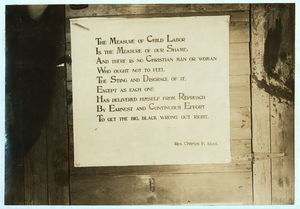 The Measure of Child Labor
Is the Measure of our Shame,
And there is no Christian man or woman
Who ought not to feel
The Sting and Disgrace of it,
Except as each one
Has delivered himself from Reproach
By Earnest and Continuous Effort
To get the big, black wrong out right.
Rev. Charles F.